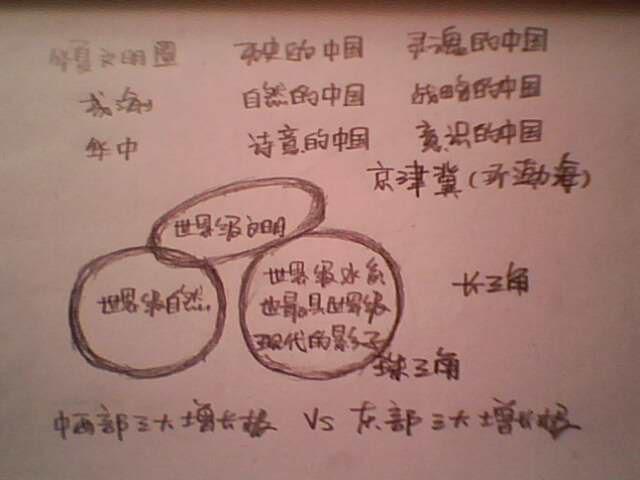 华夏文明圈 历史的中国 灵魂的中国
成渝 自然的中国 战略的中国
华中 诗意的中国 意识的中国
京津冀(环渤海)
世界级文明
世界级自然
世界级水系
世最具世界级
现代的影子
长三角
珠三角
中西部三大增长极 VS 东部三大增长极